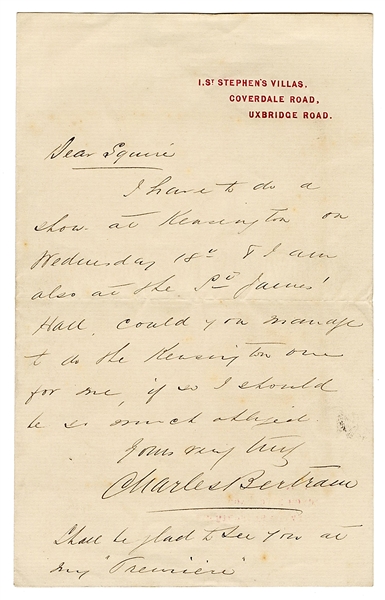 1. ST STEPHEN'S VILLAS,
COVERDALE ROAD,
UXBRIDGE ROAD.
Dear Squire
I have to do a
show at Kensington on
Wednesday 18th & I am
also at the St James'
Hall, could you manage
to do the Kensington one
for me, if so I should
be so much obliged.
Yours very truly
Charles Bertram
Shall be glad to see you at
my "Premiere"